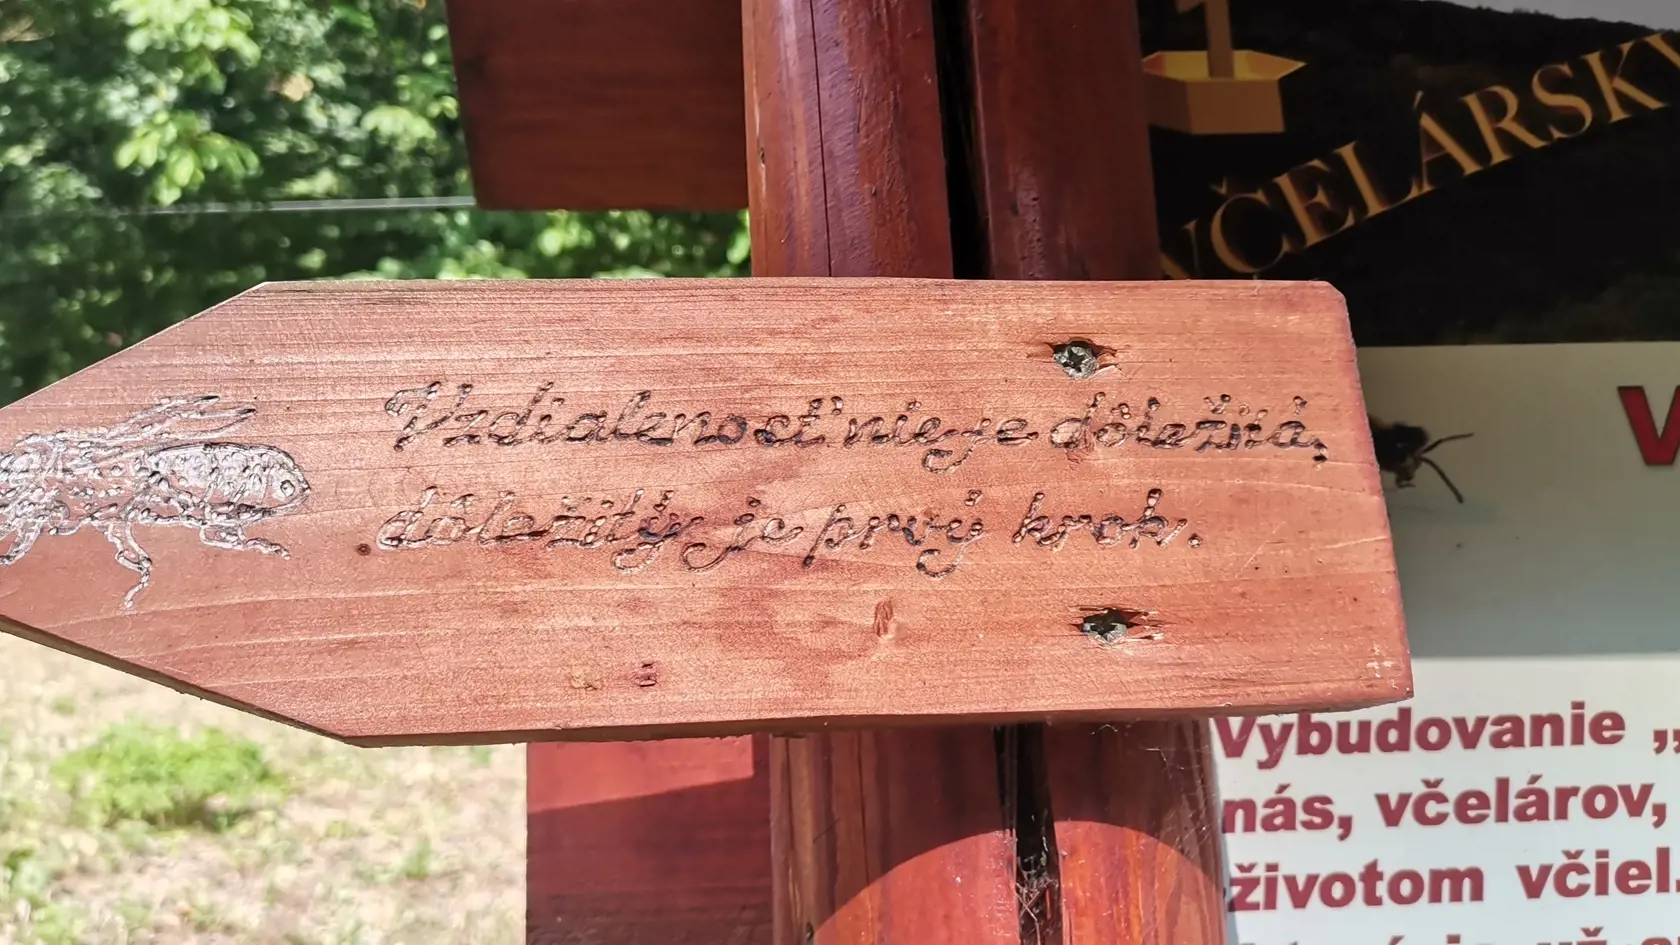 VČELÁRSKY
Vzdialenosť nie je dôležitá,
dôležitý je prvý krok.
V
Vybudovanie „
nás, včelárov,
životom včiel.